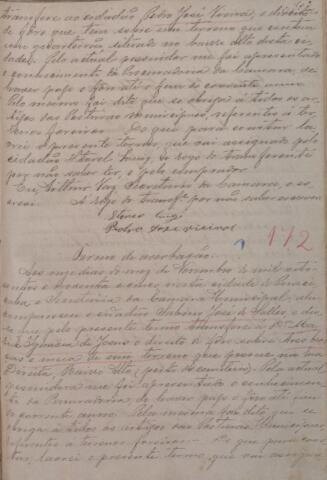 transfere ao cidadão Pedro José Vicinal, o direito
de fôro que tem sobre um terreno que contém
cem quarteirão situado no bairro alto desta ci-
dade. Pelo actual possuidor me foi apresentado
o conhecimento da Procuradoria da Camara, de
haver pago o fôro até o fim do corrente anno.
Pelo mesmo foi dito que se obriga a todos os ar-
tigos das Posturas Municipaes, referentes a ter-
renos foreiros. Do que para constar la-
vrei o presente termo, que vai assignado pelo
cidadão Luigi, a rogo do transferente
por não saber ler, e pelo comprador
Eu, Arthur Vaz, Secretario da Camara, o es-
crevi. A rogo do transfte por não saber escrever
Luigi
Pedro José Vicinal
172
Termo de averbação
Aos onze dias do mez de Novembro de mil oito-
centos e noventa e cinco nesta cidade de Piraci-
caba e Secretaria da Camara Municipal, ahi
compareceu o cidadão José de Salles, e dis-
se que pelo presente termo transferia a D. Ma-
ria de Jesus o direito de fôro sobre cinco bra-
ças e meia de um terreno que possue na rua
Direita, Bairro Alto, (perto do cemiterio). Pelo actual
possuidora me foi apresentado o conhecimento
da Procuradoria, de haver pago o fôro até fim
do corrente anno. Pela mesma foi dito que se
obriga a todos os artigos das Posturas Municipaes,
referentes a terrenos foreiros. Do que para cons-
tar, lavrei o presente termo que vai assigna-